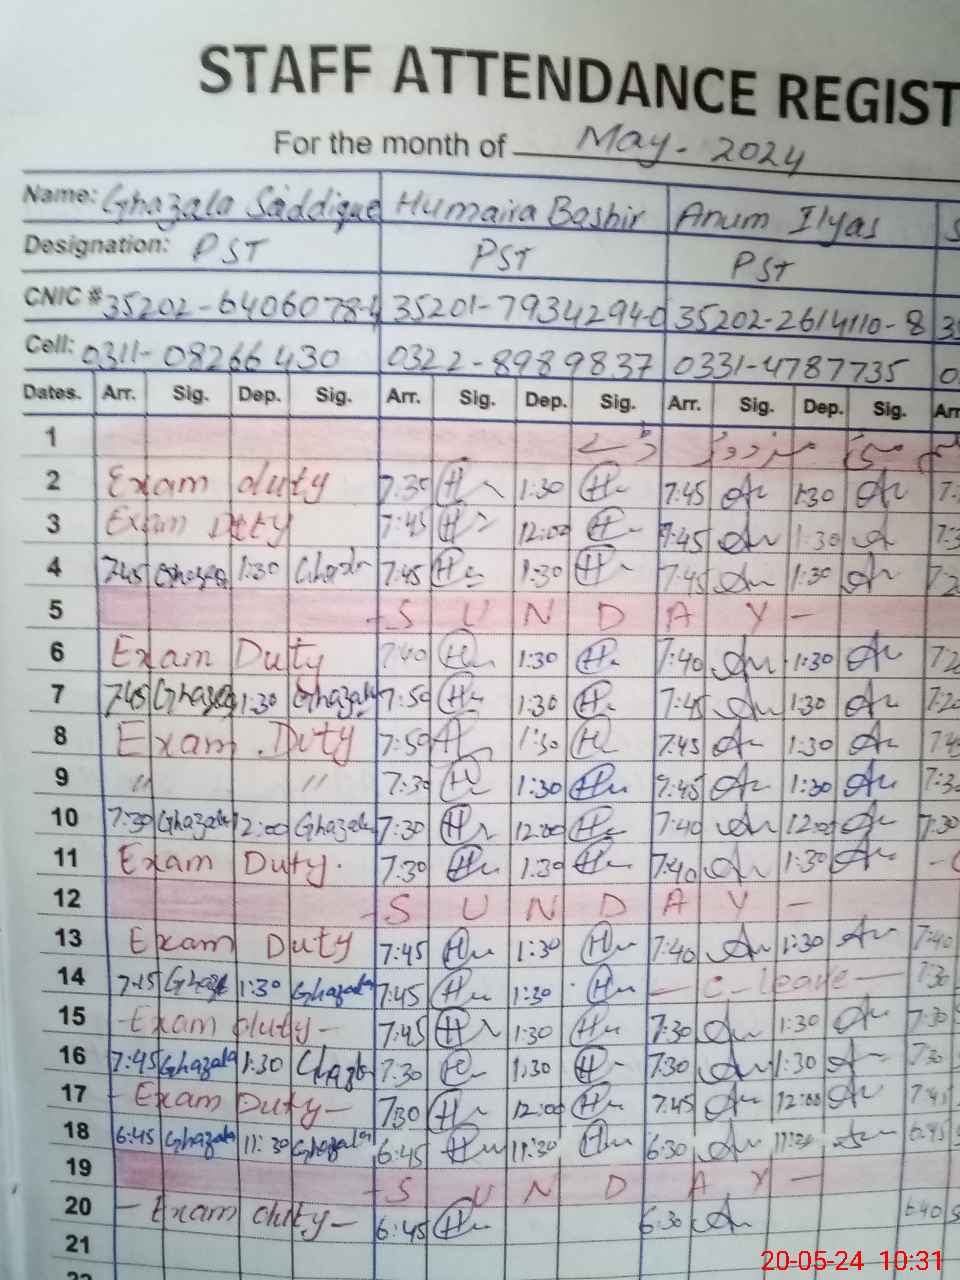 STAFF ATTENDANCE REGIST
For the month of May. 2024
Name: Ghazala Saddique Humaira Bashir Anum Ilyas S
Designation: PST PST PST
CNIC # 35202-6406078-4 35201-7934294-0 35202-2614110-8 35
Cell: 0311-08266430 0322-8989837 0331-4787735 0
Dates. Arr. Sig. Dep. Sig. Arr. Sig. Dep. Sig. Arr. Sig. Dep. Sig. Arr
1
2 Exam duty 7:30 H 1:30 H 7:45 An 1:30 An 7:
3 Exam Duty 7:45 H 12:00 H 7:45 An 1:30 A 7:3
4 7:45 Ghazala 1:30 7:45 H 1:30 H 7:45 An 1:30 An 7:20
5 - S U N D A Y -
6 Exam Duty 7:40 H 1:30 H 7:40 An 1:30 An 7:20
7 7:45 Ghazala 1:30 Ghazala 7:50 H 1:30 H 7:45 An 1:30 An 7:20
8 Exam Duty 7:50 H 1:30 H 7:45 An 1:30 An 7:45
9 " " 7:30 H 1:30 H 7:45 An 1:30 An 7:3
10 7:30 Ghazala 12:00 Ghazala 7:30 H 12:00 H 7:40 An 12:00 An 7:30
11 Exam Duty. 7:30 H 1:30 H 7:40 An 1:30 An - C
12 - S U N D A Y -
13 Exam Duty 7:45 H 1:30 H 7:40 An 1:30 An 7:40
14 7:45 Ghazala 1:30 Ghazala 7:45 H 1:30 H - C-leave - 7:30
15 - Exam duty - 7:45 H 1:30 H 7:30 An 1:30 An 7:30
16 7:45 Ghazala 1:30 Ghazala 7:30 H 1:30 H 7:30 An 1:30 An 7:30
17 - Exam Duty - 7:30 H 12:00 H 7:45 An 12:00 An 7:45
18 6:45 Ghazala 11:30 Ghazala 6:45 H 11:30 H 6:30 An 11:30 An 6:45
19 - S U N D A Y -
20 - Exam duty - 6:45 H 6:30 An 6:40 S
21
20-05-24 10:31